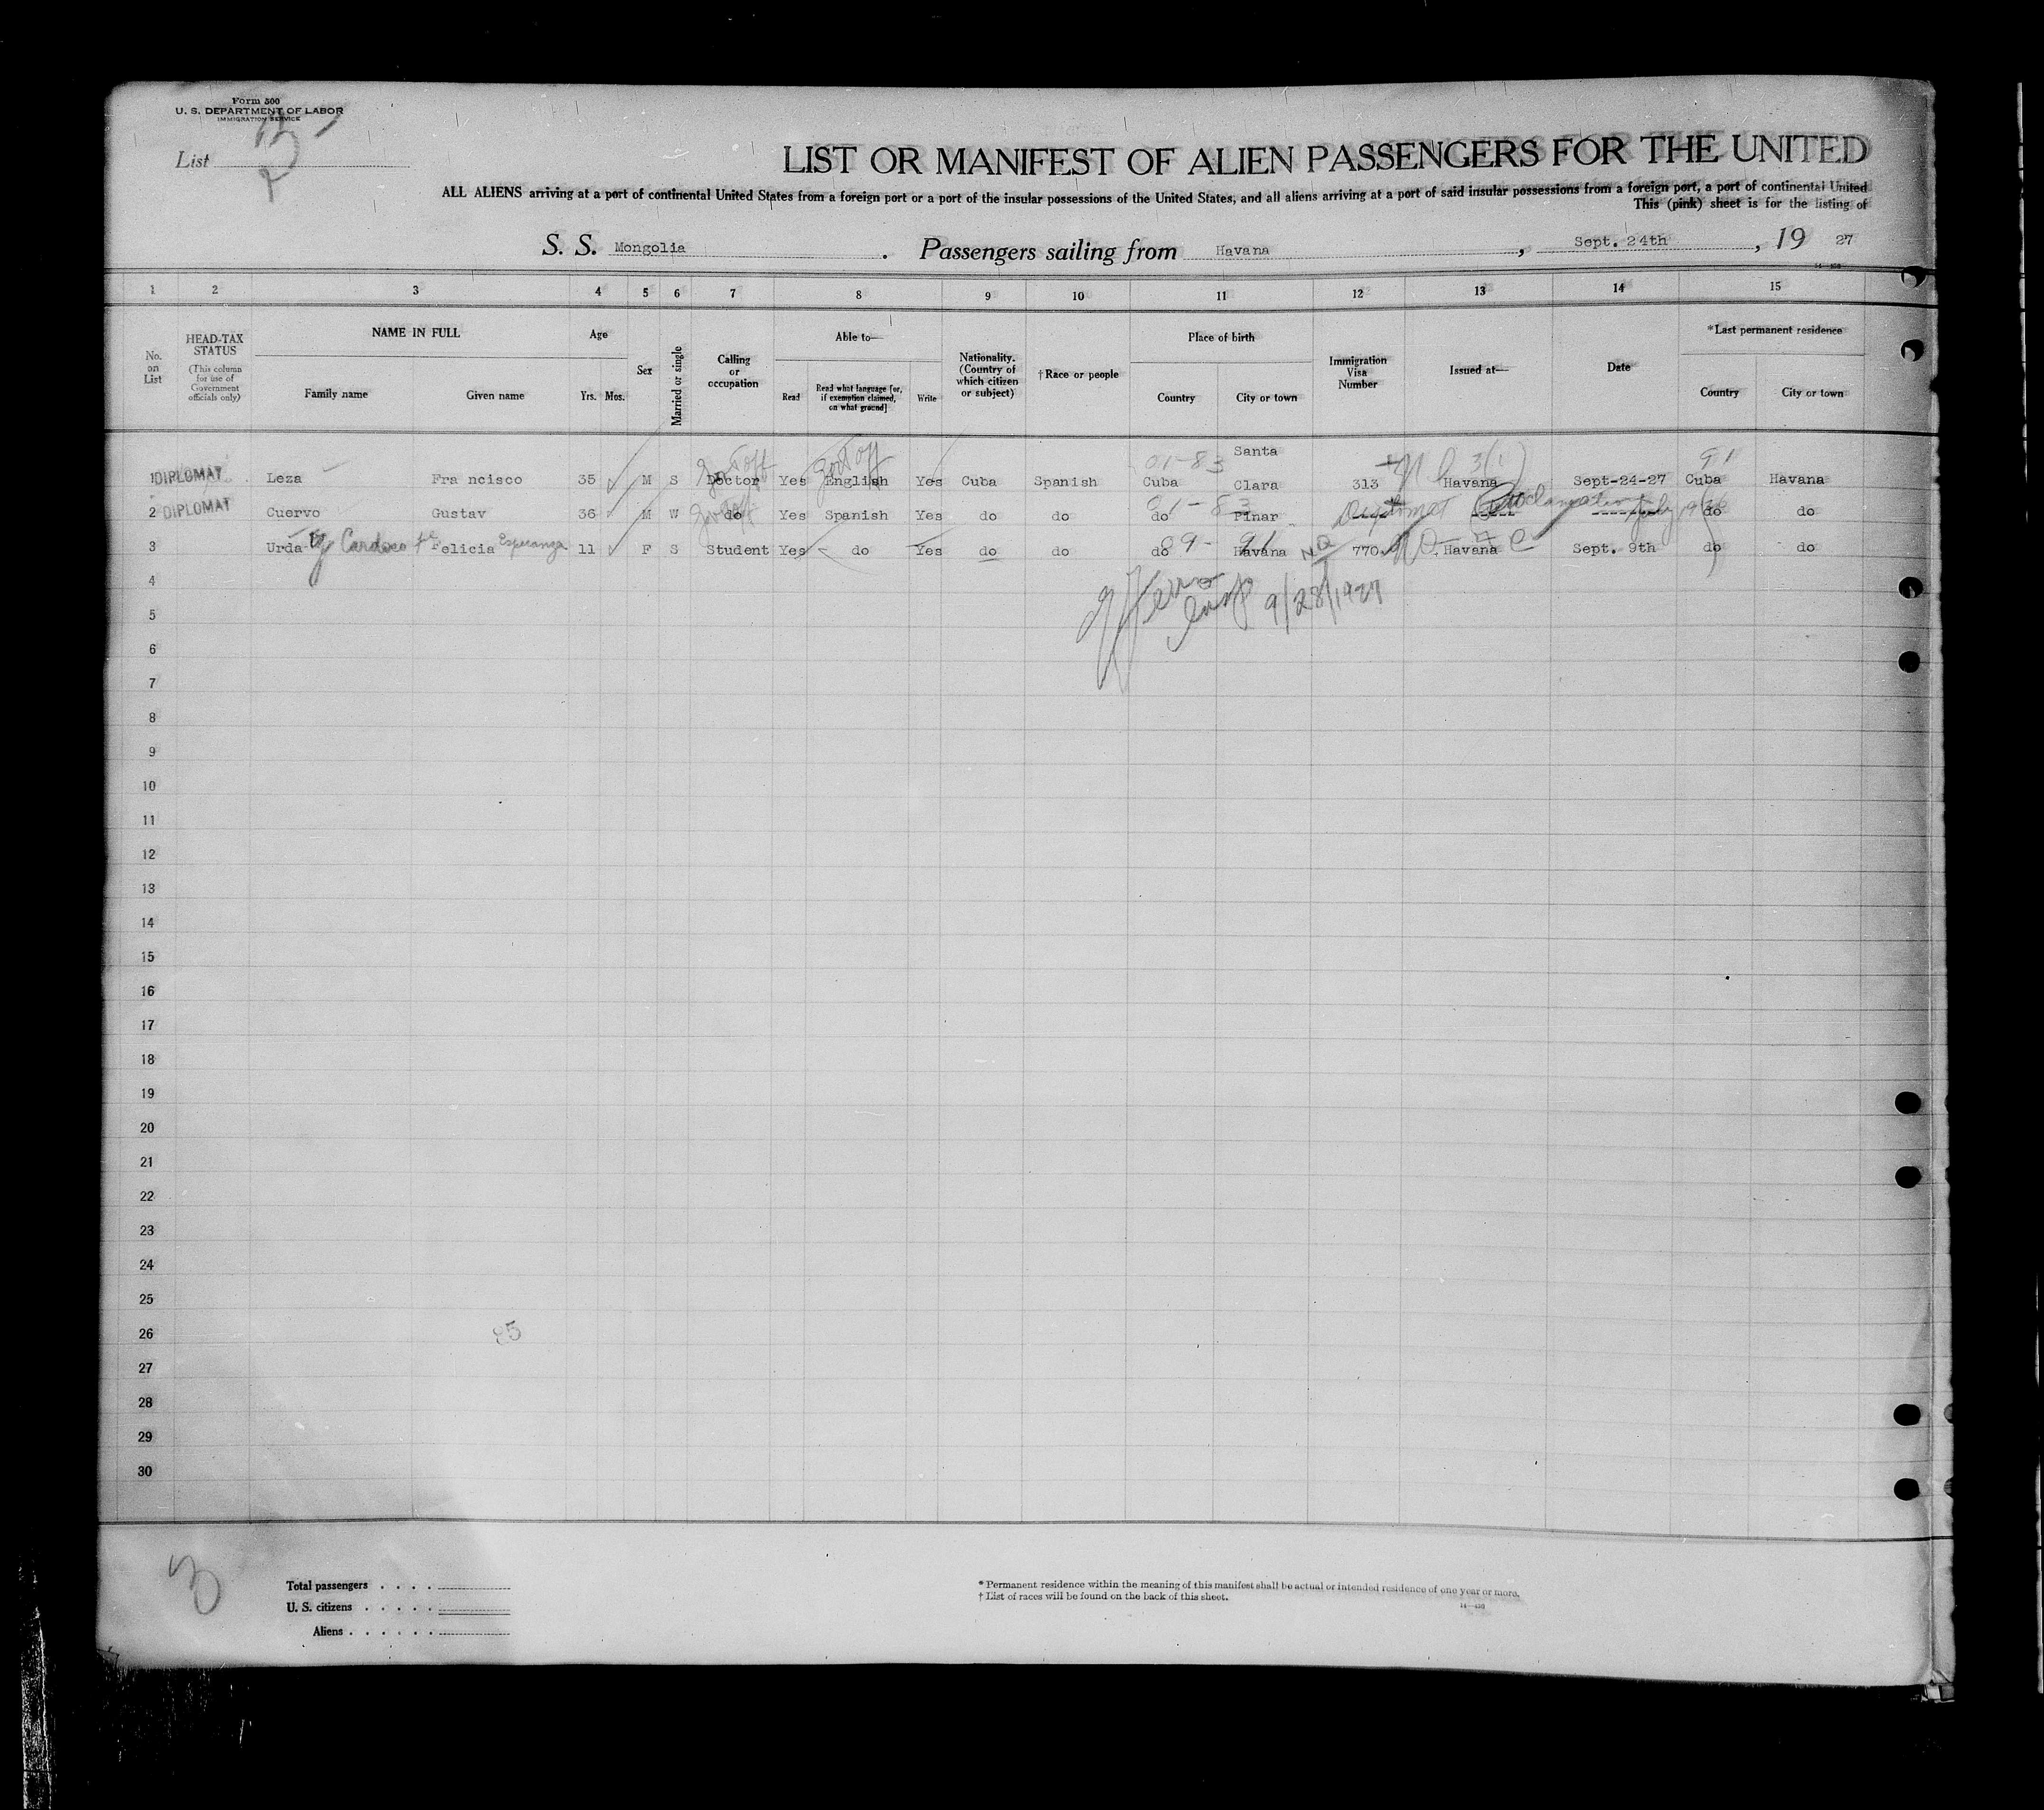 Form 500
U. S. DEPARTMENT OF LABOR
IMMIGRATION SERVICE
List 3
LIST OR MANIFEST OF ALIEN PASSENGERS FOR THE UNITED
ALL ALIENS arriving at a port of continental United States from a foreign port or a port of the insular possessions of the United States, and all aliens arriving at a port of said insular possessions from a foreign port, a port of continental United
This (pink) sheet is for the listing of
S. S. Mongolia . Passengers sailing from Havana , Sept. 24th , 19 27
1 2 3 4 5 6 7 8 9 10 11 12 13 14 15
No. on List
HEAD-TAX STATUS
(This column for use of Government officials only)
NAME IN FULL
Family name Given name
Age
Yrs. Mos.
Sex
Married or single
Calling or occupation
Able to—
Read Read what language [or, if exemption claimed, on what ground] Write
Nationality. (Country of which citizen or subject)
†Race or people
Place of birth
Country City or town
Immigration Visa Number
Issued at—
Date
*Last permanent residence
Country City or town
1 DIPLOMAT Leza Fra ncisco 35 M S Doctor Yes English Yes Cuba Spanish Cuba Santa Clara 313 3(1) Havana Sept-24-27 Cuba Havana
01-83 91
2 DIPLOMAT Cuervo Gustav 36 M W do Yes Spanish Yes do do do Pinar Diplomat Proclamation July do do
01-83
3 Urda y Cardoso Felicia Esperanza 11 F S Student Yes do Yes do do do Havana NQ 770 Havana Sept. 9th do do
09-91
4
9/28/1927
5
6
7
8
9
10
11
12
13
14
15
16
17
18
19
20
21
22
23
24
25
26
27
28
29
30
3
Total passengers . . . .
U. S. citizens . . . . .
Aliens . . . . . .
* Permanent residence within the meaning of this manifest shall be actual or intended residence of one year or more.
† List of races will be found on the back of this sheet.